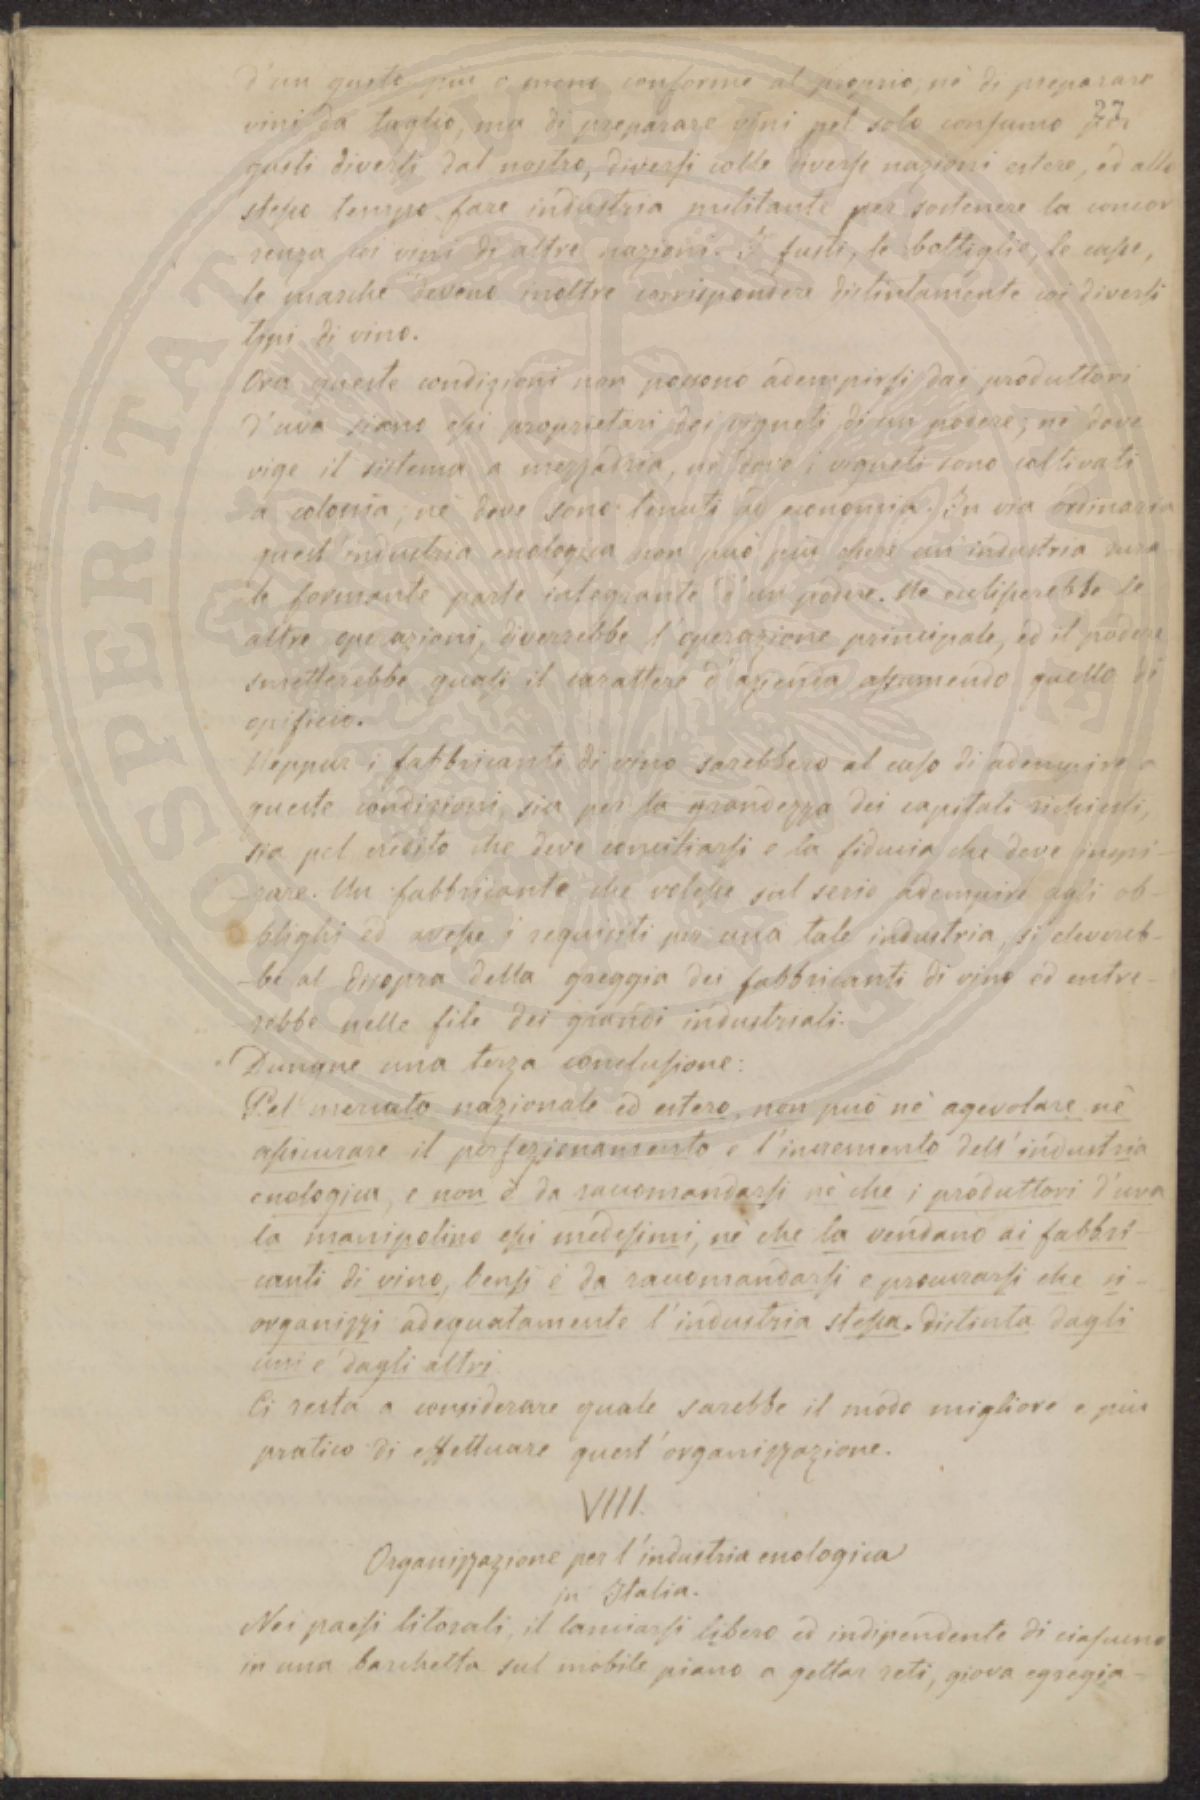 27
d'un gusto più o meno conforme al proprio, nè di preparare
vini da taglio, ma di preparare vini pel solo consumo pei
gusti diversi dal nostro, diversi colle diverse nazioni estere, ed allo
stesso tempo fare industria militante per sostenere la concor
renza coi vini di altre nazioni. I fusti, le bottiglie, le casse,
le marche devono inoltre corrispondere distintamente coi diversi
tipi di vino.
Ora queste condizioni non possono adempirsi dai produttori
d'uva siano essi proprietari dei vigneti di un podere; nè dove
vige il sistema a mezzadria, nè dove i vigneti sono coltivati
a colonia; nè dove sono tenuti ad economia. In via ordinaria
quest'industria enologica non può più essere un'industria rura
le formante parte integrante d'un podere. Ne eclisserebbe le
altre operazioni, diverrebbe l'operazione principale, ed il podere
smetterebbe quasi il carattere d'azienda assumendo quello di
opificio.
Neppur i fabbricanti di vino sarebbero al caso di adempire a
queste condizioni, sia per la grandezza dei capitali richiesti,
sia pel credito che deve conciliarsi e la fiducia che deve inspi-
-rare. Un fabbricante che volesse sul serio adempire agli ob-
-blighi ed avesse i requisiti per una tale industria, si elevereb-
-be al disopra della greggia dei fabbricanti di vino ed entre-
rebbe nelle file dei grandi industriali.
Dunque una terza conclusione:
Pel mercato nazionale ed estero, non può nè agevolare nè
assicurare il perfezionamento e l'incremento dell'industria
enologica, e non è da raccomandarsi nè che i produttori d'uva
la manipolino essi medesimi, nè che la vendano ai fabbri-
canti di vino, bensì è da raccomandarsi e procurarsi che si
organizzi adeguatamente l'industria stessa distinta dagli
uni e dagli altri.
Ci resta a considerare quale sarebbe il modo migliore e più
pratico di effettuare quest'organizzazione.
VIII.
Organizzazione per l'industria enologica
in Italia.
Nei paesi litorali, il lanciarsi libero ed indipendente di ciascuno
in una barchetta sul mobile piano a gettar reti, giova egregia-